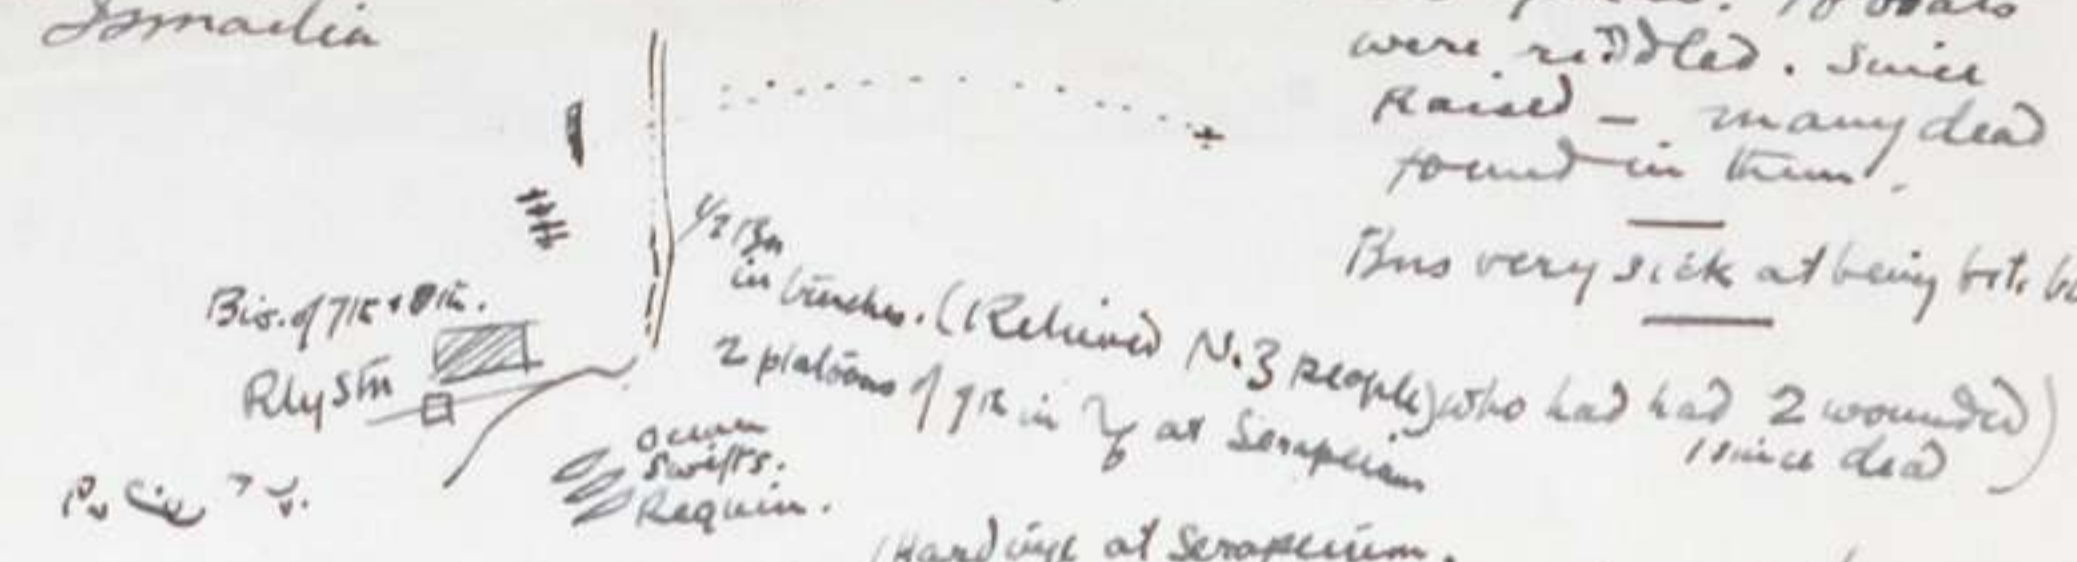 Ismailia
were riddled. Since
Raised — many dead
found in them.
Bns very sick at being
1/2 Bn
in trenches. (Relieved N.Z people) who had had 2 wounded)
1 since dead
2 platoons of 7th in at Serapeum
Biv. of 7th & 8th.
Rly Stn
Ocean
Swifts.
Requin.
(Hardinge at Serapeum.